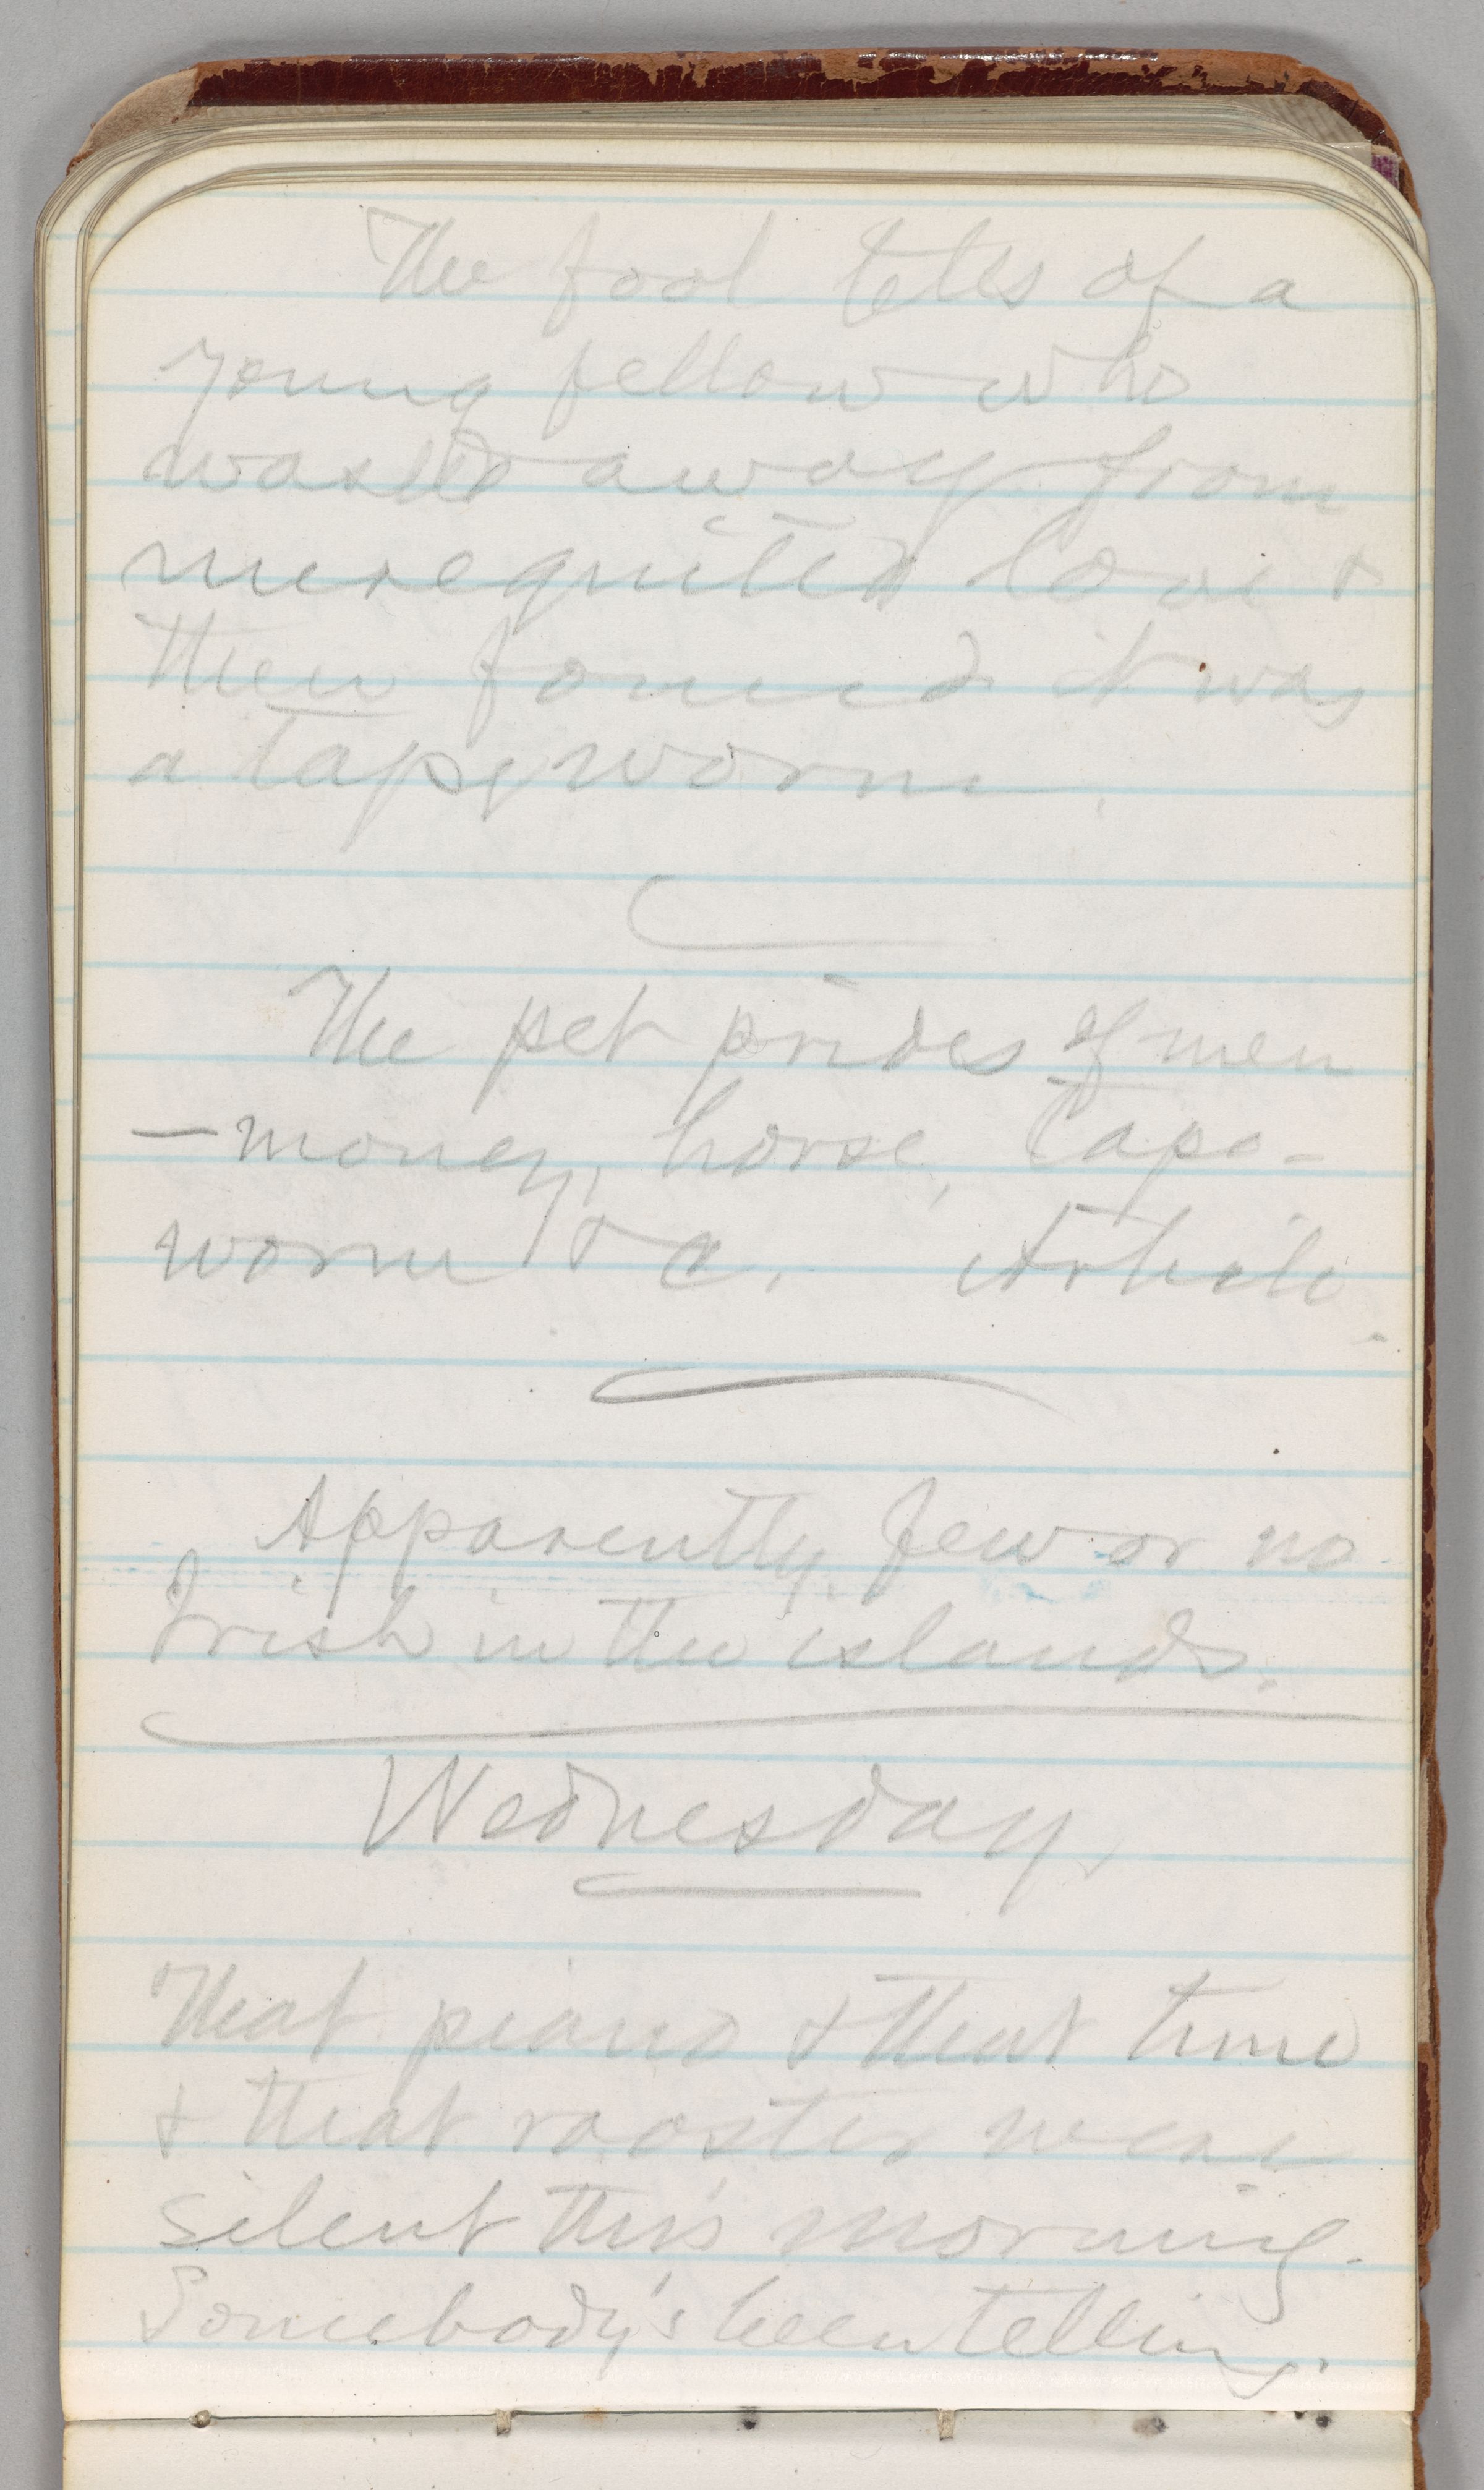 The fool tells of a
young fellow who
wasted away from
unrequited love &
then found it was
a tapeworm.
The pet prides of men
—money, horse, tape-
worm &c. Article.
Apparently few or no
Irish in the islands.
Wednesday,
That piano & that tune
& that rooster were
silent this morning.
Somebody's been telling.